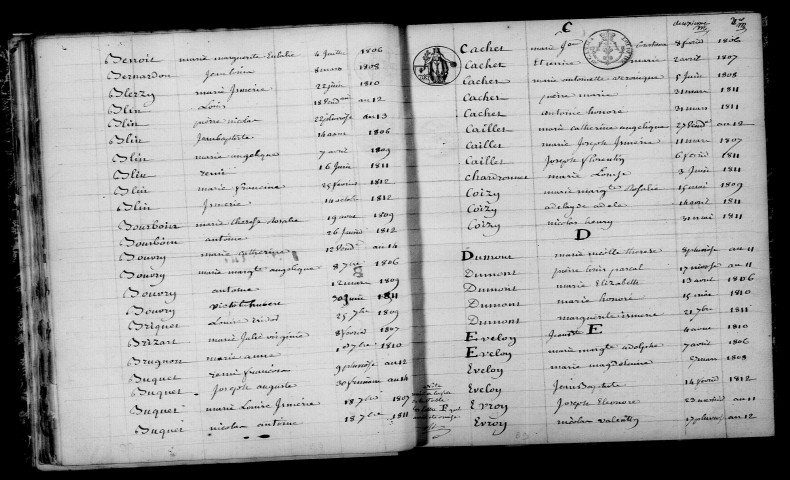 Benoit marie marguerite Eulalie 4 Juillet 1806
Bernardon Jean louis 8 mars 1808
Blerzy marie Irmérie 22 juin 1810
Blin Louis 18 Vend an 12
Blin pierre nicolas 22 pluviose an 13
Blin Jean baptiste 14 aout 1806
Blin marie angelique 7 avril 1809
Blin remi 16 Juin 1811
Blin marie francine 25 février 1812
Blin Irmerie 14 octobre 1812
Bourboin marie therese rosalie 19 aout 1809
Bourboin antoine 26 Juin 1812
Bouvry marie catherique 12 Vend an 14
Bouvry marie margte angelique 8 7bre 1806
Bouvry antoine 12 mars 1809
Bouvry victoire 30 Juin 1811
Briquet Louise 25 7bre 1809
Brizart marie Julie virginie 8 février 1807
Brugnon marie anne 1er 7bre 1810
Buquet remi françois 9 pluviose an 12
Buquet Joseph auguste 30 frimaire an 14
Buquet marie Louise Irmérie 18 7bre 1807
Buquet nicolas antoine 18 7bre 1811
deuxieme
C
Cachet marie 8 février 1806
Cachet Etienne marie 2 avril 1807
Cachet marie antoinette veronique 5 Juin 1808
Cachet pierre marie 21 mars 1811
Cachet antoine honoré 31 mars 1811
Caillet marie catherine angelique 27 Vend an 12
Caillet marie Joseph Irmérie 11 mars 1807
Caillet Joseph florentin 6 février 1811
Chardronnet marie Louise 3 Juin 1811
Coizy marie margte Rosalie 15 mai 1809
Coizy adelayde adele 16 avril 1811
Coizy nicolas henry 31 mai 1811
D
Dumont marie therese 8 pluviose an 11
Dumont pierre louis pascal 17 nivose an 11
Dumont marie Elizabeth 13 aout 1806
Dumont marie honoré 15 1810
Dumont marguerite irmérie 21 7bre 1811
E
Eveloy 4 aout 1810
Eveloy marie margte adolphe 7 avril 1806
Eveloy marie magdelaine mars 1808
Eveloy Jean Baptiste 14 février 1812
Evroy Joseph Eleonore 23 an 12
Evroy nicolas valentin 17 pluviose an 12